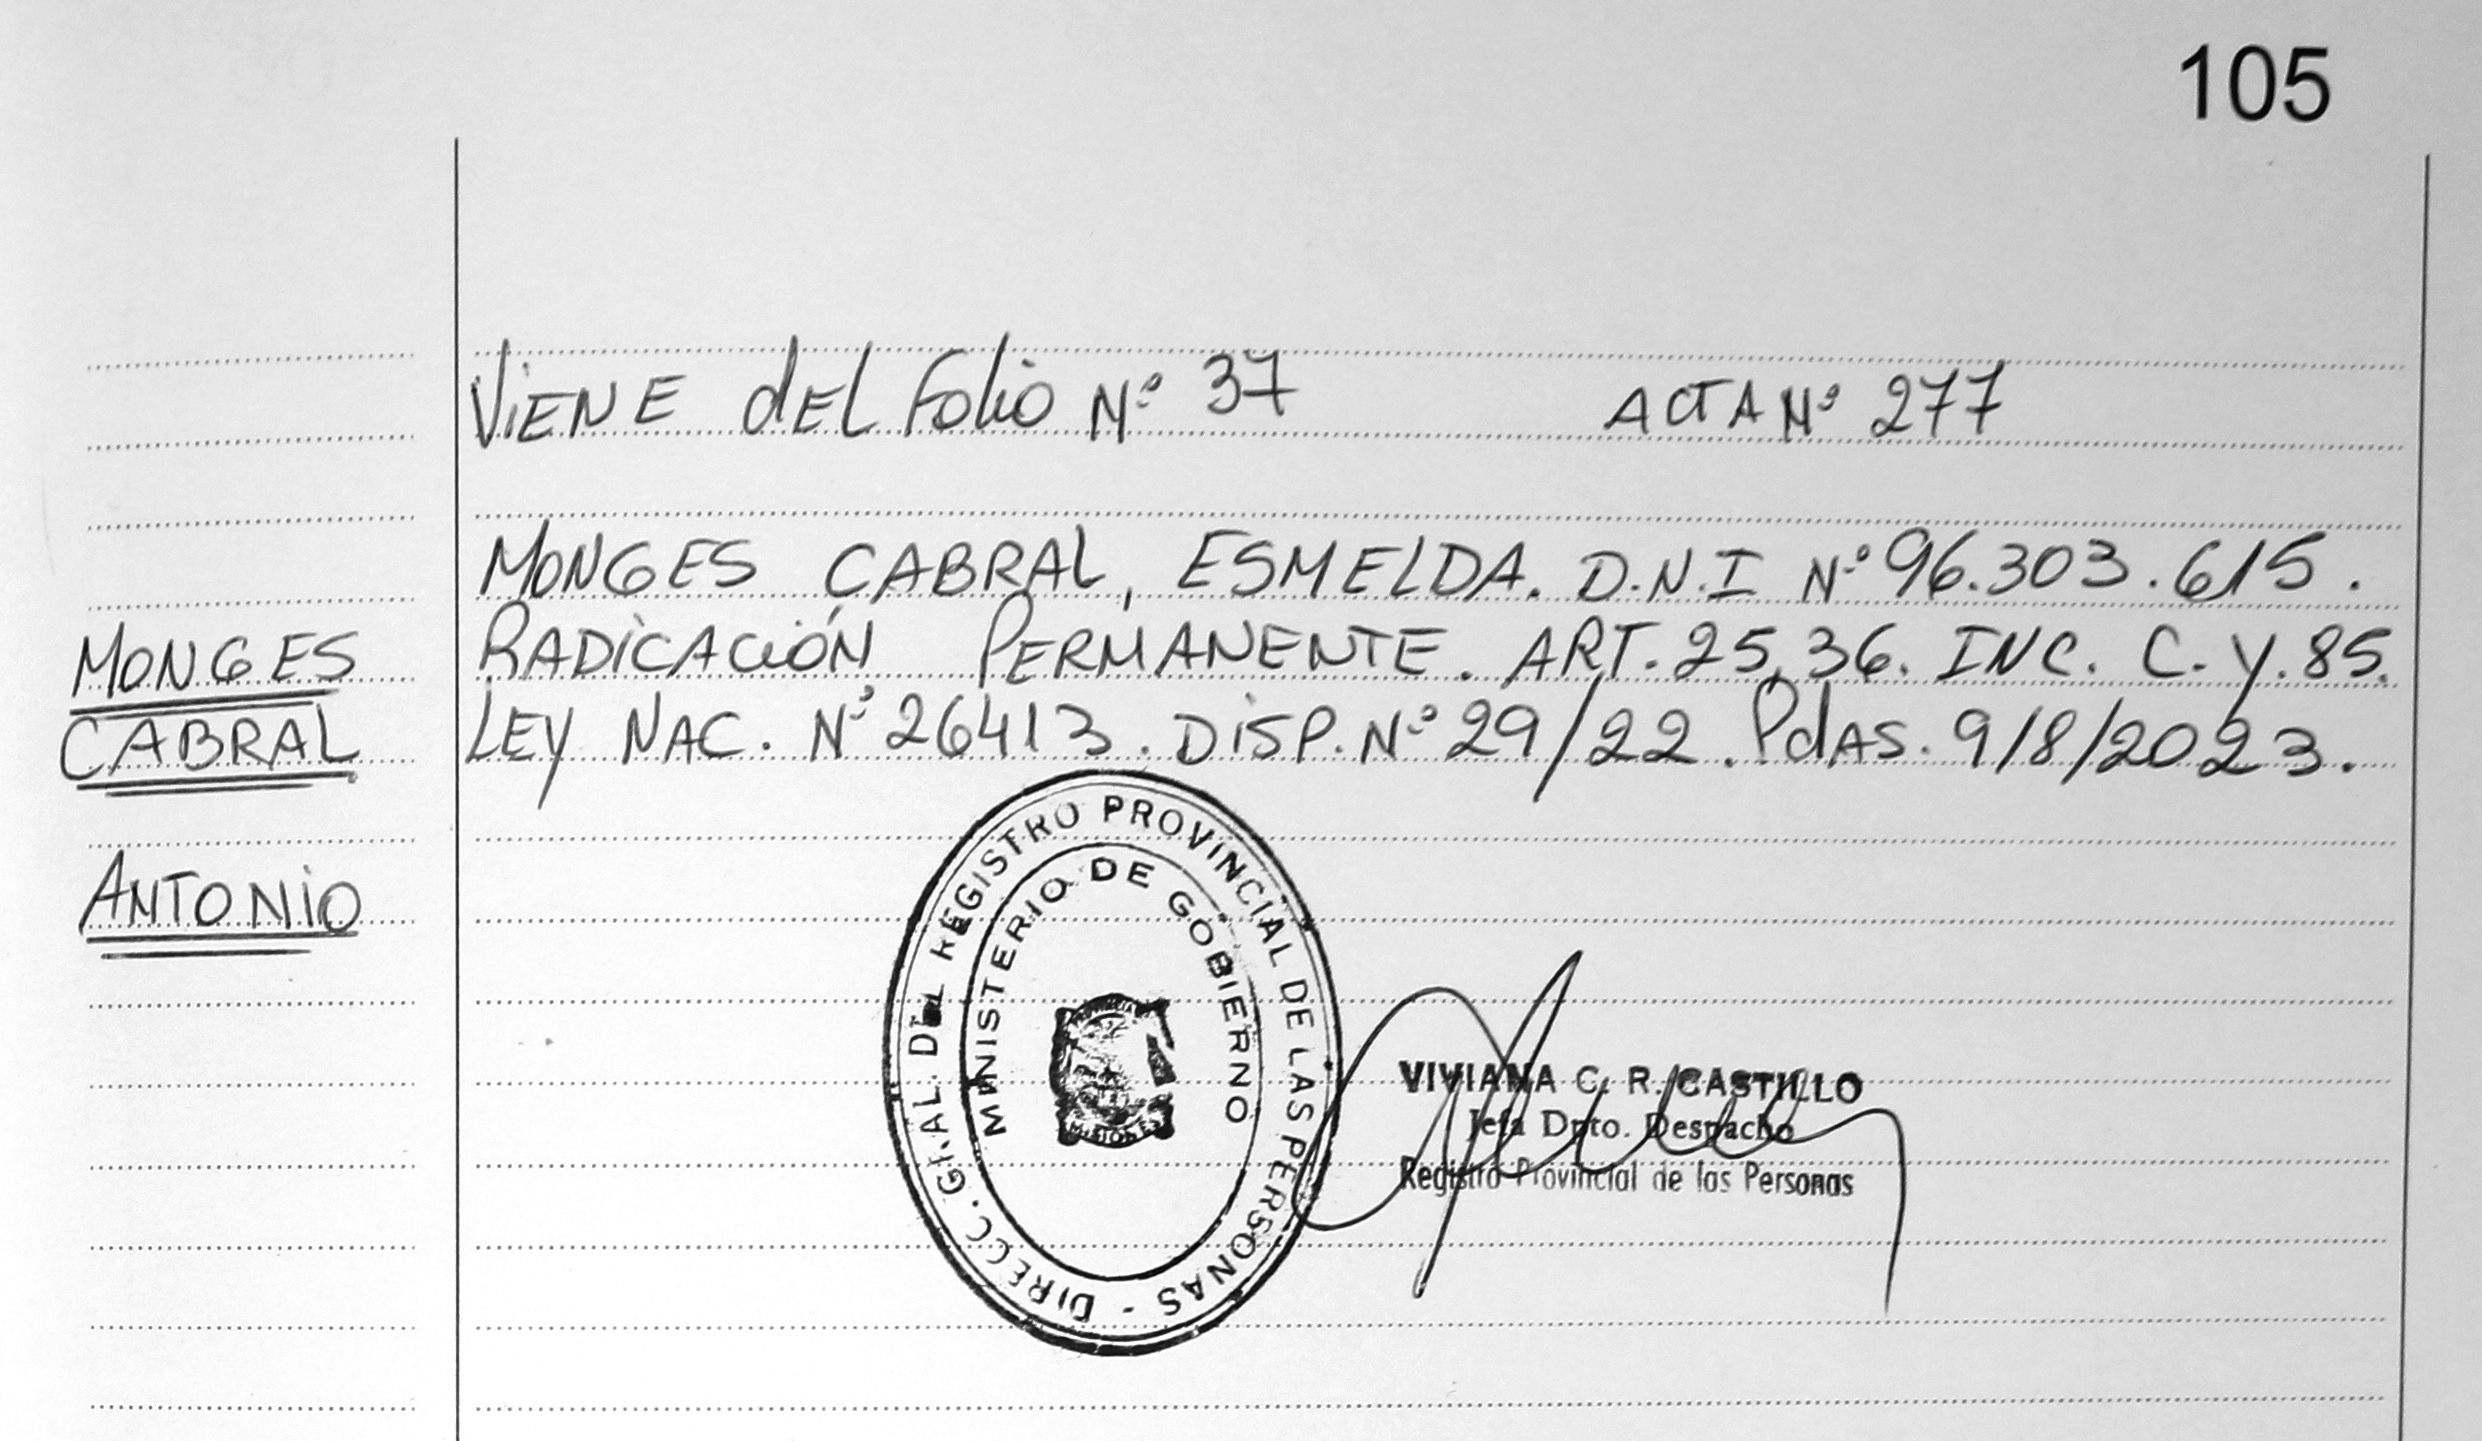 105
Viene del Folio N° 37 ACTA N° 277
MONGES CABRAL, ESMELDA. D.N.I N° 96.303.615.
RADICACIÓN PERMANENTE. ART. 25,36. INC. C. Y. 85.
LEY NAC. N° 26413. DISP. N° 29/22. Pdas. 9/8/2023.
MONGES
CABRAL
ANTONIO
DIRECC. GRAL. DEL REGISTRO PROVINCIAL DE LAS PERSONAS -
MINISTERIO DE GOBIERNO
MISIONES
VIVIANA C. R. CASTILLO
Jefa Dpto. Despacho
Registro Provincial de las Personas